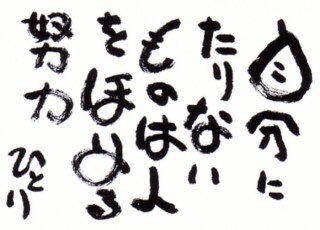 自分に
たりない
ものは人
をほめる
努力
ひとり